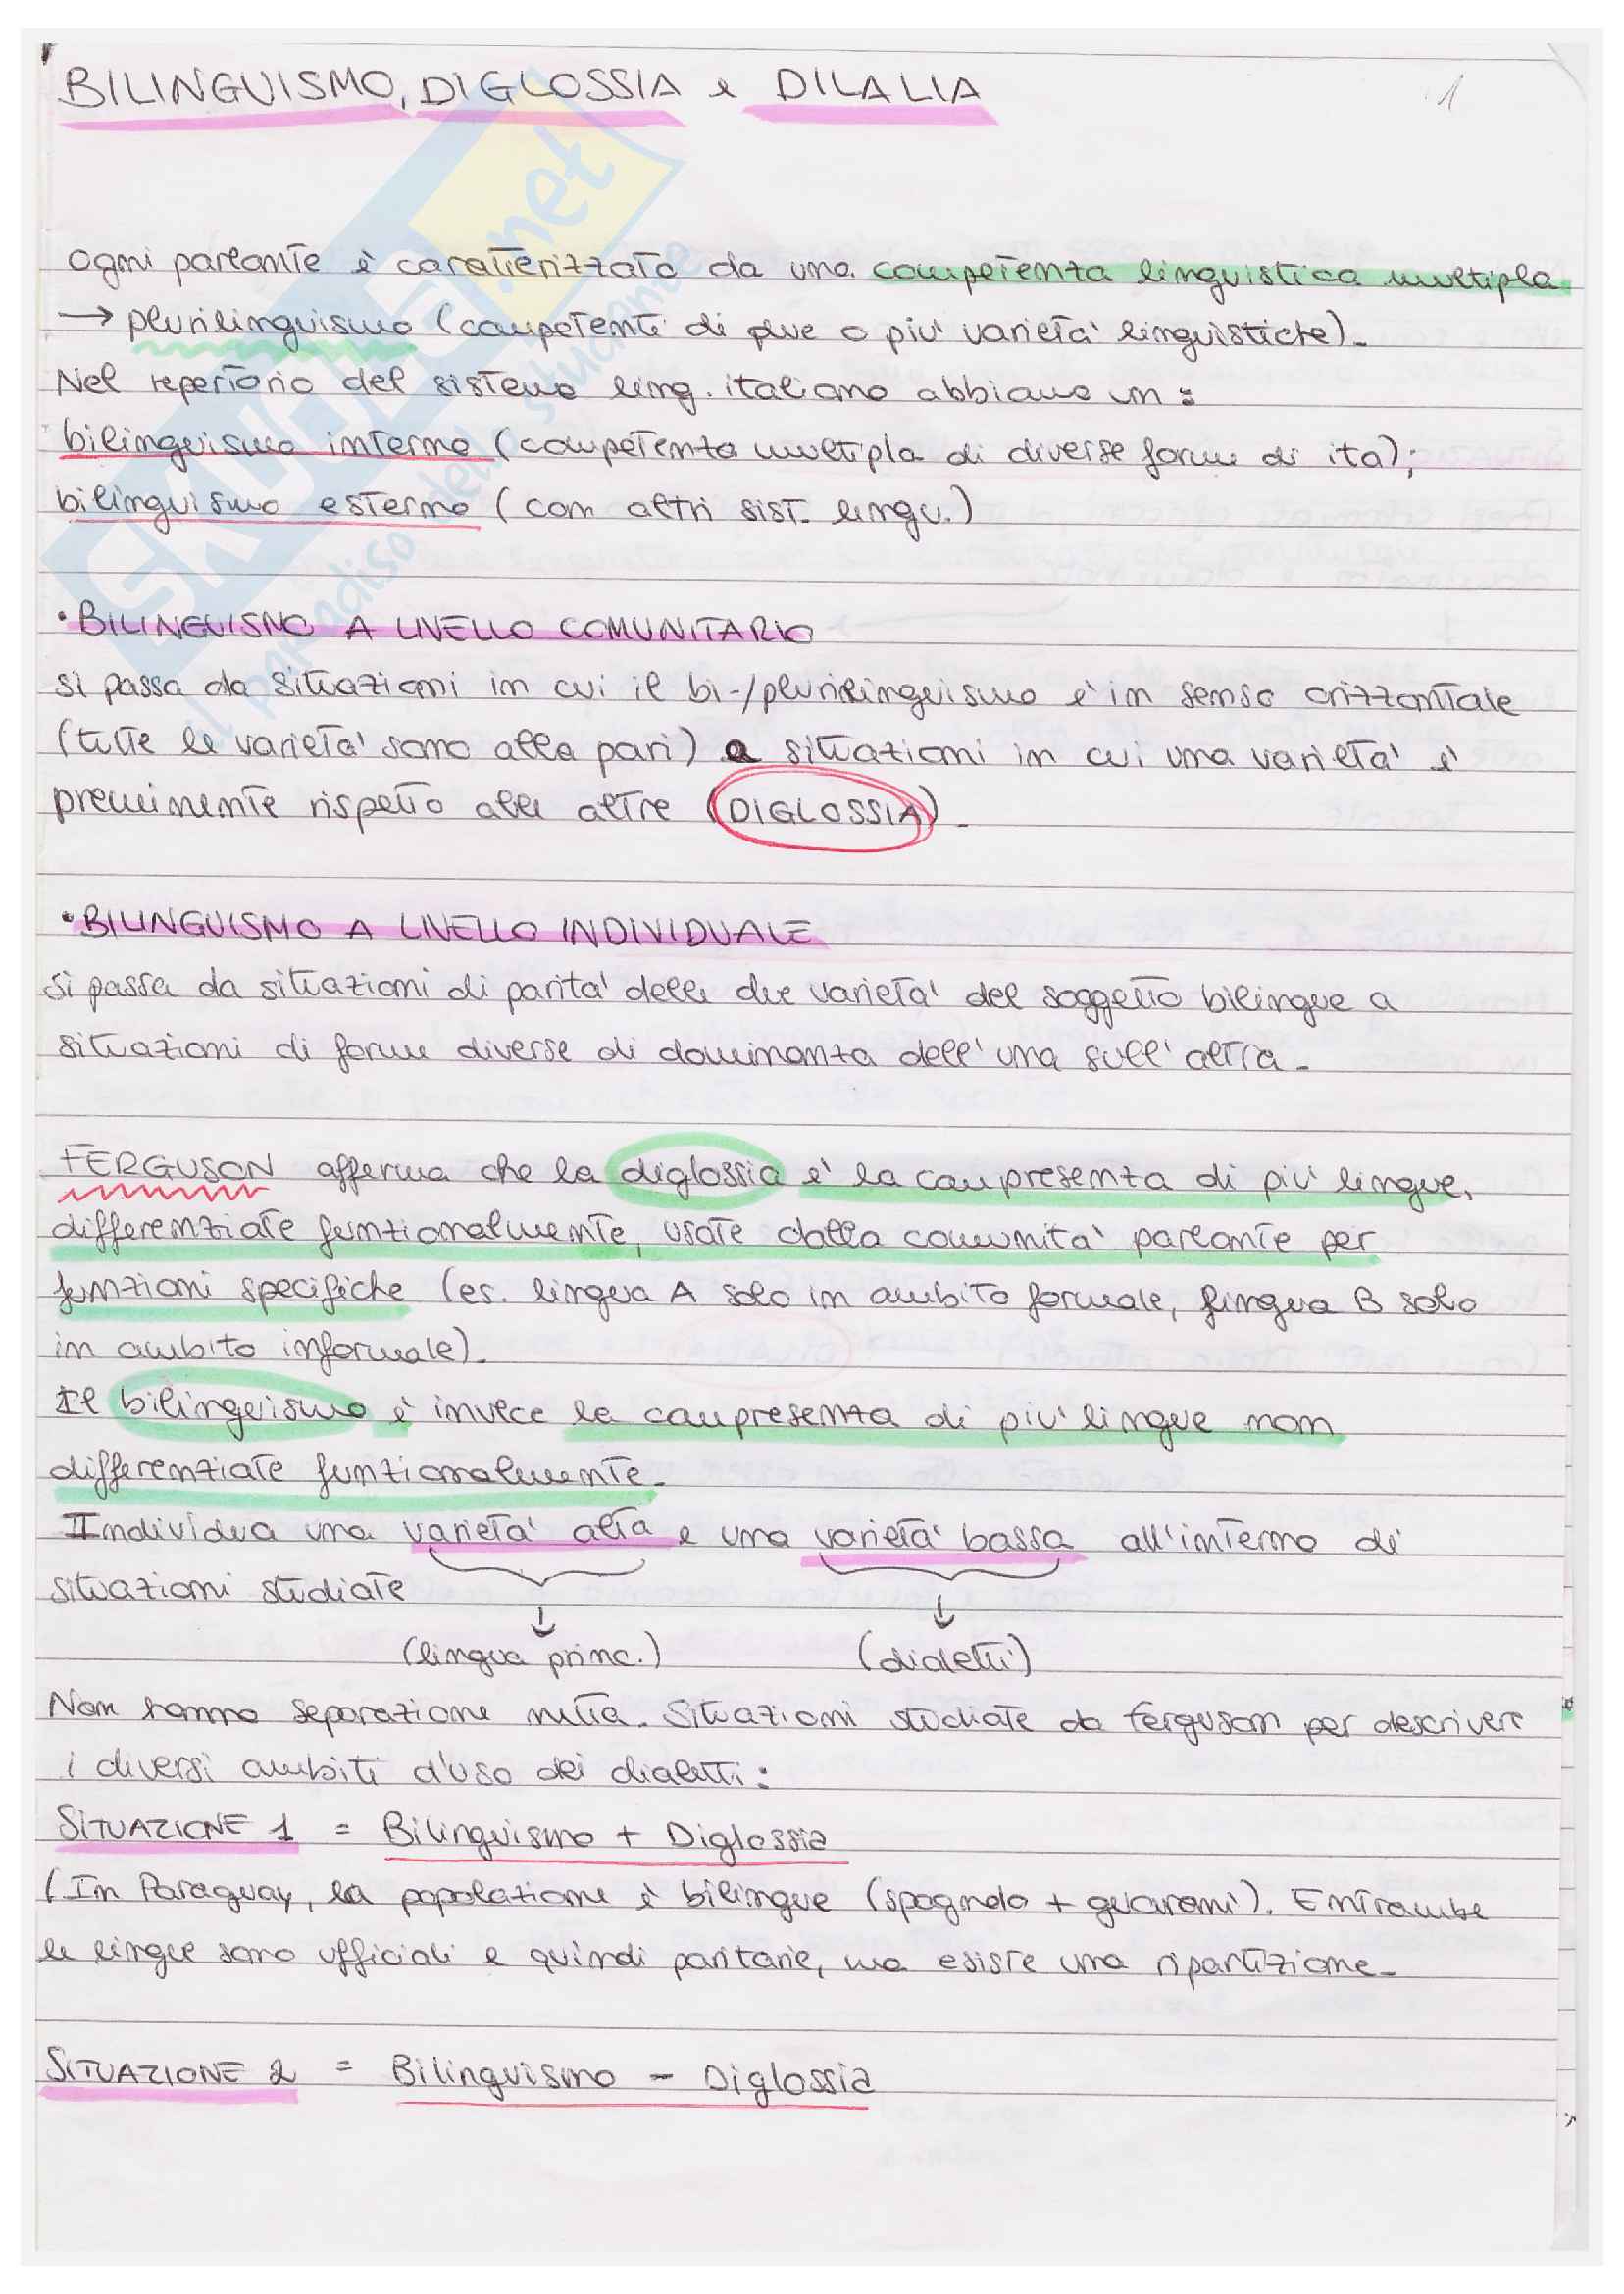 BILINGUISMO, DIGLOSSIA e DILALIA
1
Ogni parlante è caratterizzato da una competenza linguistica multipla
→ plurilinguismo (competente di due o più varietà linguistiche).
Nel repertorio del sistema ling. italiano abbiamo un:
bilinguismo interno (competenza multipla di diverse forme di ita);
bilinguismo esterno (con altri sist. lingu.)
• BILINGUISMO A LIVELLO COMUNITARIO
si passa da situazioni in cui il bi-/plurilinguismo è in senso orizzontale
(tutte le varietà sono alla pari) a situazioni in cui una varietà è
preminente rispetto alle altre (DIGLOSSIA).
• BILINGUISMO A LIVELLO INDIVIDUALE
Si passa da situazioni di parità delle due varietà del soggetto bilingue a
situazioni di forme diverse di dominanza dell'una sull'altra.
FERGUSON afferma che la diglossia è la compresenza di più lingue,
differenziate funzionalmente, usate dalla comunità parlante per
funzioni specifiche (es. lingua A solo in ambito formale, lingua B solo
in ambito informale).
Il bilinguismo è invece la compresenza di più lingue non
differenziate funzionalmente.
Individua una varietà alta e una varietà bassa all'interno di
situazioni studiate
(lingua princ.) (dialetti)
Non hanno separazione netta. Situazioni studiate da Ferguson per descrivere
i diversi ambiti d'uso dei dialetti:
SITUAZIONE 1 = Bilinguismo + Diglossia
(In Paraguay, la popolazione è bilingue (spagnolo + guaranì). Entrambe
le lingue sono ufficiali e quindi paritarie, ma esiste una ripartizione.
SITUAZIONE 2 = Bilinguismo - Diglossia
SKUOLA.net
il paradiso dello studente